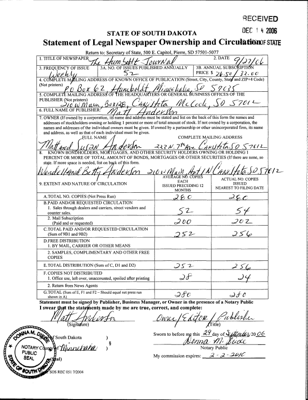 RECEIVED
DEC 14 2006
STATE OF SOUTH DAKOTA
Statement of Legal Newspaper Ownership and Circulation
OF STATE
Return to: Secretary of State, 500 E. Capitol, Pierre, SD 57501-5077
1. TITLE OF NEWSPAPER The Humboldt Journal
2. DATE 9/27/06
3. FREQUENCY OF ISSUE Weekly
3A. NO. OF ISSUES PUBLISHED ANNUALLY 52
3B. ANNUAL SUBSCRIPTION PRICE $
4. COMPLETE MAILING ADDRESS OF KNOWN OFFICE OF PUBLICATION (Street, City, County, State and ZIP+4 Code) (Not printers)
PO Box 62, Humboldt, Minnehaha, SD
5. COMPLETE MAILING ADDRESS OF THE HEADQUARTERS OR GENERAL BUSINESS OFFICES OF THE PUBLISHER (Not printers)
Canistota, McCook, SD 57012
6. FULL NAME OF PUBLISHER: Matt Anderson
7. OWNER (If owned by a corporation, its name and address must be stated and list on the back of this form the names and
addresses of stockholders owning or holding 1 percent or more of total amount of stock. If not owned by a corporation, the
names and addresses of the individual owners must be given. If owned by a partnership or other unincorporated firm, its name
and address, as well as that of each individual must be given.
FULL NAME
COMPLETE MAILING ADDRESS
Matt and Susan Anderson
Canistota SD 57012
8. KNOWN BONDHOLDERS, MORTGAGES, AND OTHER SECURITY HOLDERS OWNING OR HOLDING 1
PERCENT OR MORE OF TOTAL AMOUNT OF BONDS, MORTGAGES OR OTHER SECURITIES (If there are none, so
state. If more space is needed, list on back of this form.
Anderson
Canistota SD 57012
9. EXTENT AND NATURE OF CIRCULATION
AVERAGE NO. COPIES EACH ISSUED PRECEDING 12 MONTHS
ACTUAL NO. COPIES ISSUED NEAREST TO FILING DATE
A. TOTAL NO. COPIES (Net Press Run) 280 260
B. PAID AND/OR REQUESTED CIRCULATION
1. Sales through dealers and carriers, street vendors and counter sales. 52 54
2. Mail Subscription (Paid and or requested) 200 202
C. TOTAL PAID AND/OR REQUESTED CIRCULATION (Sum of 9B1 and 9B2) 252 256
D. FREE DISTRIBUTION
1. BY MAIL, CARRIER OR OTHER MEANS
2. SAMPLES, COMPLIMENTARY AND OTHER FREE COPIES
E. TOTAL DISTRIBUTION (Sum of C, D1 and D2) 252 256
F. COPIES NOT DISTRIBUTED
1. Office use, left over, unaccounted, spoiled after printing 28 24
2. Return from News Agents
G. TOTAL (Sum of E, F1 and F2 - Should equal net press run shown in A) 280 280
Statement must be signed by Publisher, Business Manager, or Owner in the presence of a Notary Public
I swear that the statements made by me are true, correct, and complete:
Matt Anderson
Owner/Editor/Publisher
(Signature)
(Title)
South Dakota
Sworn to before me this 29 day of
Donna M.
Notary Public
County of Minnehaha
My commission expires:
DONNA M.
NOTARY PUBLIC
SEAL
SOUTH DAKOTA